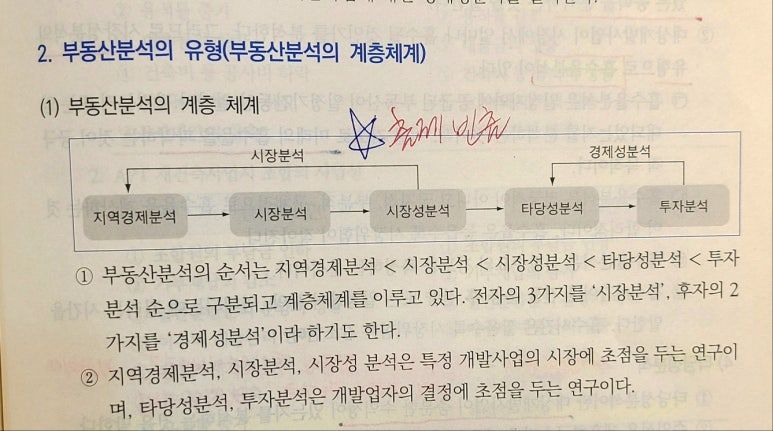 2. 부동산분석의 유형(부동산분석의 계층체계)
(1) 부동산분석의 계층 체계
시장분석
경제성분석
지역경제분석 시장분석 시장성분석 타당성분석 투자분석
① 부동산분석의 순서는 지역경제분석 < 시장분석 < 시장성분석 < 타당성분석 < 투자
분석 순으로 구분되고 계층체계를 이루고 있다. 전자의 3가지를 ‘시장분석’, 후자의 2
가지를 ‘경제성분석’이라 하기도 한다.
② 지역경제분석, 시장분석, 시장성 분석은 특정 개발사업의 시장에 초점을 두는 연구이
며, 타당성분석, 투자분석은 개발업자의 결정에 초점을 두는 연구이다.